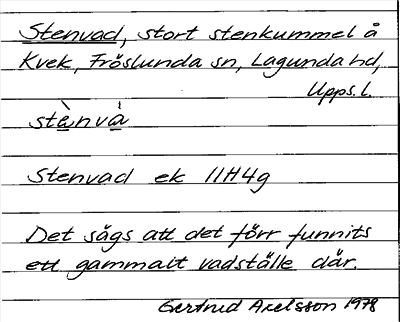 Stenvad, stort stenkummel å
Kvek, Fröslunda sn, Lagunda hd,
Upps. l.
stènvá
Stenvad ek 11H4g
Det sägs att det förr funnits
ett gammalt vadställe där.
Gertrud Axelsson 1978